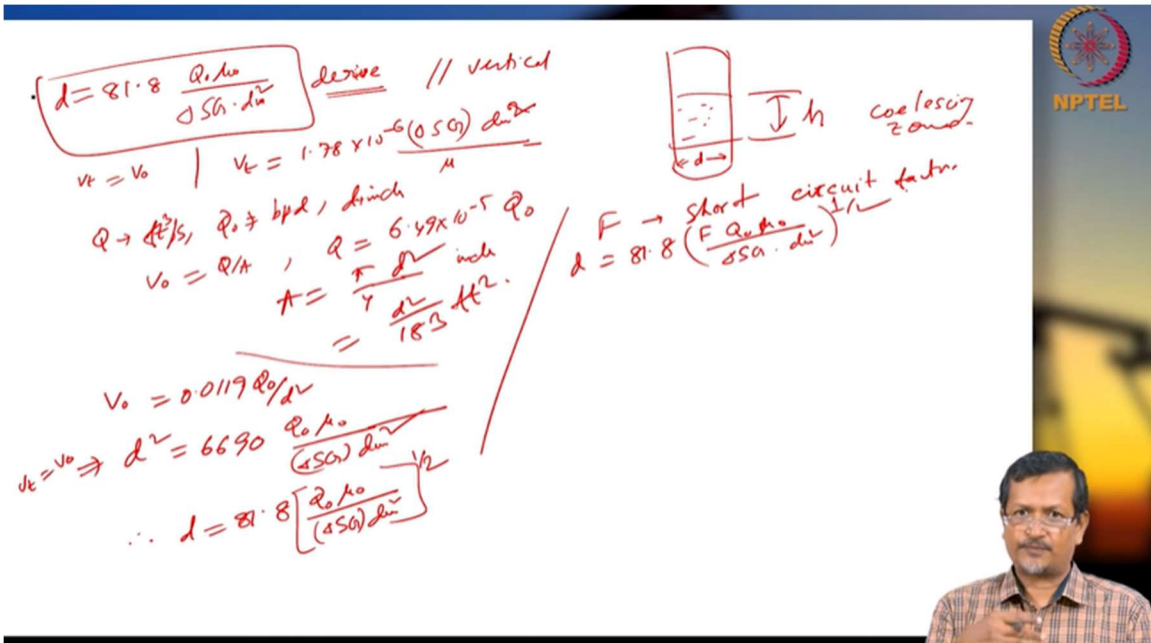 d = 81.8 Q₀μ₀ / ΔSG · dm² derive // vertical
Vt = V₀ | Vt = 1.78 × 10⁻⁶ (ΔSG) dm² / μ
Q → ft³/s, Q₀ → bpd, d inch
V₀ = Q/A , Q = 6.49 × 10⁻⁵ Q₀
A = π/4 d² inch
= d²/183 ft².
V₀ = 0.0119 Q₀/d²
Vt = V₀ ⇒ d² = 6690 Q₀μ₀ / (ΔSG) dm²
∴ d = 81.8 [Q₀μ₀ / (ΔSG) dm²]^1/2
h coalescing
zone
← d →
F → short circuit factor.
d = 81.8 (F Q₀μ₀ / ΔSG · dm²)^1/2
NPTEL